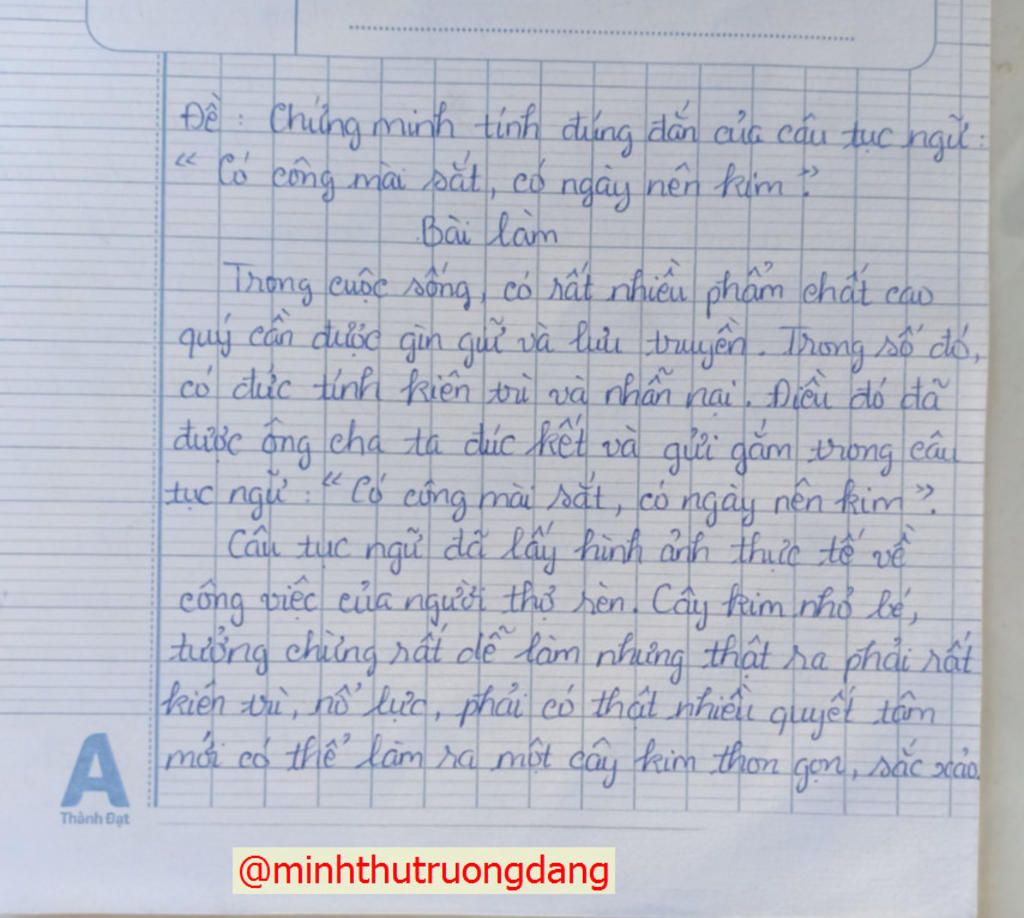 Đề: Chứng minh tính đúng đắn của câu tục ngữ:
“ Có công mài sắt, có ngày nên kim ”.
Bài làm
Trong cuộc sống, có rất nhiều phẩm chất cao
quý cần được gìn giữ và lưu truyền. Trong số đó,
có đức tính kiên trì và nhẫn nại. Điều đó đã
được ông cha ta đúc kết và gửi gắm trong câu
tục ngữ: “ Có công mài sắt, có ngày nên kim ”.
Câu tục ngữ đã lấy hình ảnh thực tế về
công việc của người thợ rèn. Cây kim nhỏ bé,
tưởng chừng rất dễ làm nhưng thật ra phải rất
kiên trì, nổ lực, phải có thật nhiều quyết tâm
mới có thể làm ra một cây kim thon gọn, sắc xảo.
A
Thành Đạt
@minhthutruongdang